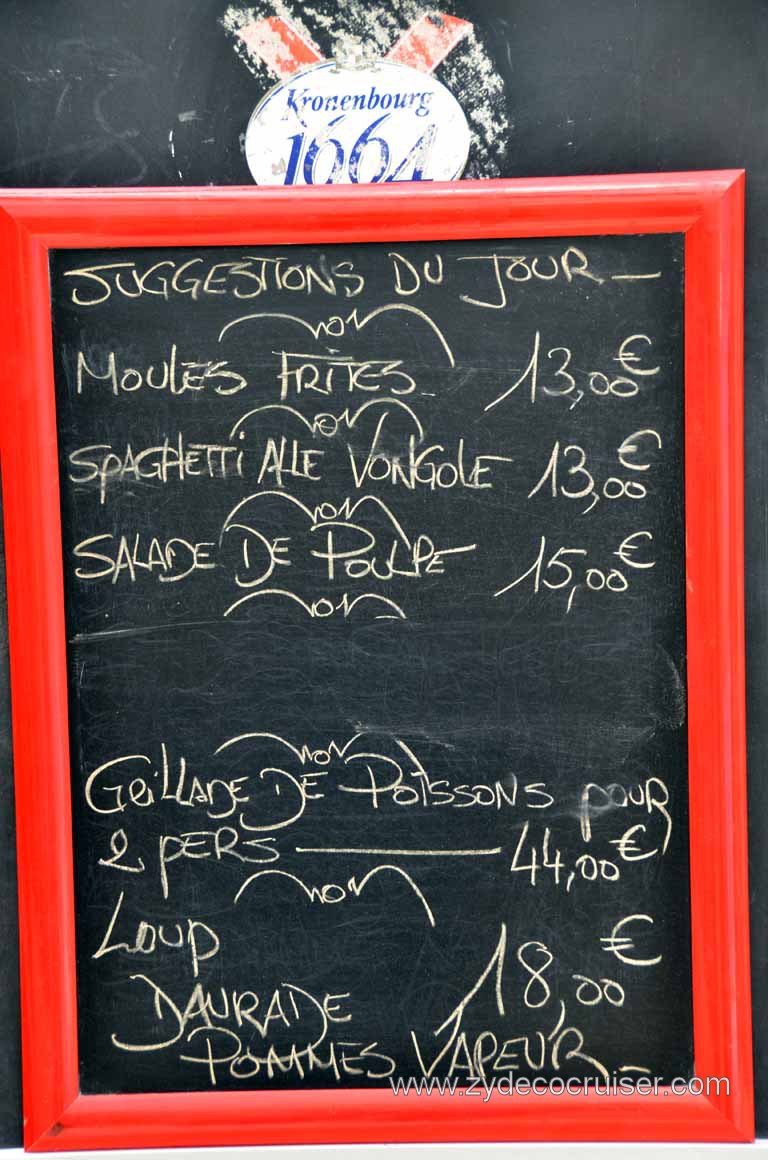 Kronenbourg
1664
SUGGESTIONS DU JOUR_
MOULES FRITES 13,00€
SPAGHETTI ALLE VONGOLE 13,00€
SALADE DE POULPE 15,00€
GRILLADE DE POISSONS POUR
2 PERS — 44,00€
LOUP
DAURADE 18,00€
POMMES VAPEUR_
www.zydecocruiser.com